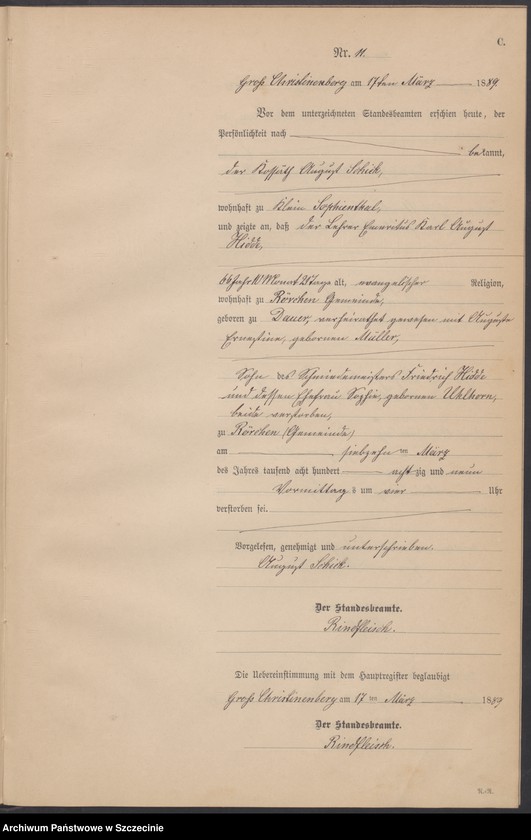 C.
Nr. 11.
Groß Christinenberg am 17ten März 1889.
Vor dem unterzeichneten Standesbeamten erschien heute, der
Persönlichkeit nach
bekannt,
der Kossäth August Schick,
wohnhaft zu Klein Sophienthal,
und zeigte an, daß der Lehrer Emeritus Karl August
Hidde,
66 Jahr 10 Monat 21 Tage alt, evangelischer Religion,
wohnhaft zu Rörchen Gemeinde,
geboren zu Dauer, verheirathet gewesen mit Auguste
Ernestine, gebornen Müller,
Sohn des Schmiedemeisters Friedrich Hidde
und dessen Ehefrau Sophie, gebornen Uhlhorn,
beide verstorben,
zu Rörchen (Gemeinde)
am siebzehn ten März
des Jahres tausend acht hundert achtzig und neun
Vormittags um vier Uhr
verstorben sei.
Vorgelesen, genehmigt und unterschrieben.
August Schick.
Der Standesbeamte.
Rindfleisch.
Die Uebereinstimmung mit dem Hauptregister beglaubigt
Groß Christinenberg am 17 ten März 1889
Der Standesbeamte.
Rindfleisch.
Archiwum Państwowe w Szczecinie